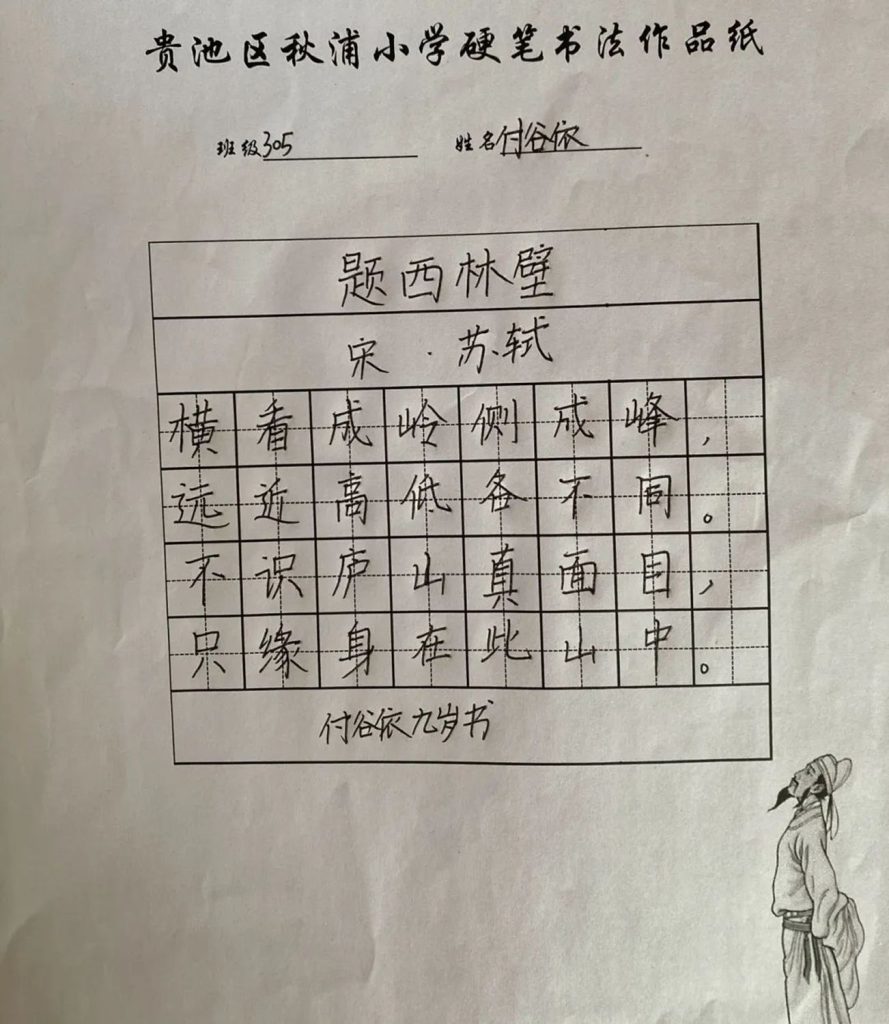 贵池区秋浦小学硬笔书法作品纸
班级305 姓名付谷依
题西林壁
宋·苏轼
横看成岭侧成峰，
远近高低各不同。
不识庐山真面目，
只缘身在此山中。
付谷依九岁书